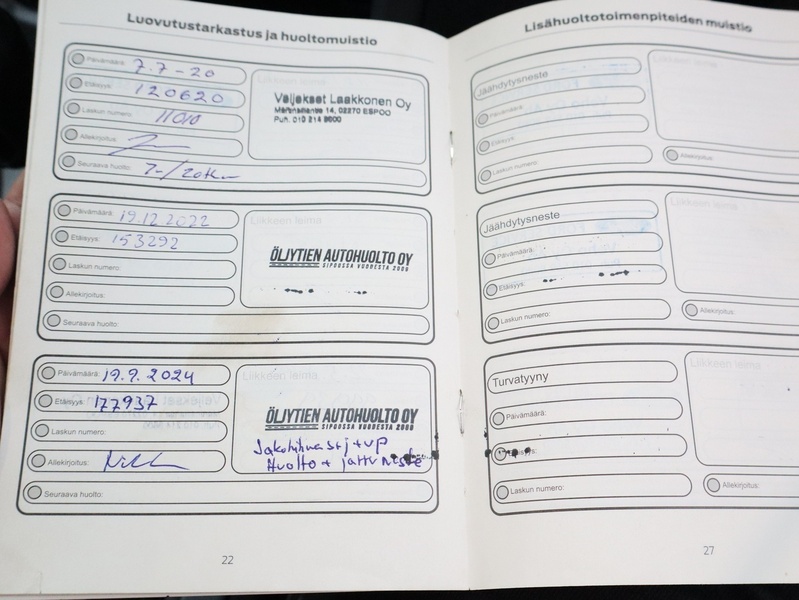 Luovutustarkastus ja huoltomuistio
Päivämäärä: 7.7-20
Etäisyys: 120620
Laskun numero: 11010
Allekirjoitus:
Seuraava huolto:
Liikkeen leima
Veljekset Laakkonen Oy
Martinsillantie 14, 02270 ESPOO
Puh. 010 214 8600
Päivämäärä: 19.12.2022
Etäisyys: 153292
Laskun numero:
Allekirjoitus:
Seuraava huolto:
Liikkeen leima
ÖLJYTIEN AUTOHUOLTO OY
SIPOOSSA VUODESTA 2009
Päivämäärä: 19.9.2024
Etäisyys: 177937
Laskun numero:
Allekirjoitus:
Seuraava huolto:
Liikkeen leima
ÖLJYTIEN AUTOHUOLTO OY
SIPOOSSA VUODESTA 2009
Jakohihnasrj + vp
Huolto + jarruneste
22
Lisähuoltotoimenpiteiden muistio
Jäähdytysneste
Päivämäärä:
Etäisyys:
Laskun numero:
Liikkeen leima
Allekirjoitus:
Jäähdytysneste
Päivämäärä:
Etäisyys:
Laskun numero:
Liikkeen leima
Allekirjoitus:
Turvatyyny
Päivämäärä:
Etäisyys:
Laskun numero:
Liikkeen leima
Allekirjoitus:
27